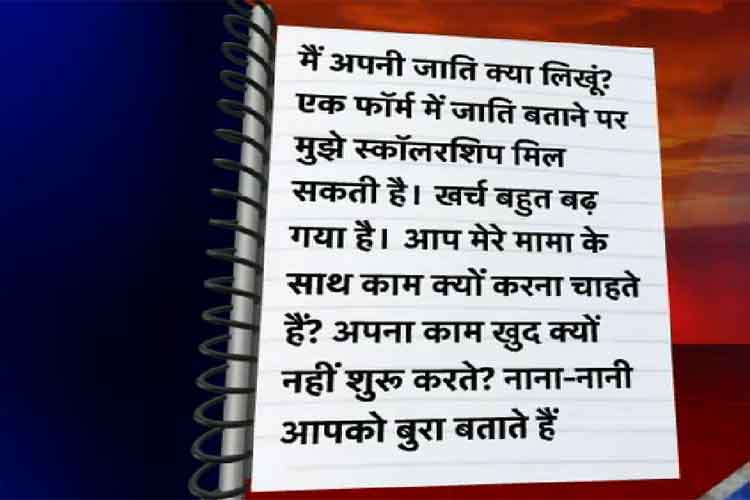 मैं अपनी जाति क्या लिखूं?
एक फॉर्म में जाति बताने पर
मुझे स्कॉलरशिप मिल
सकती है। खर्च बहुत बढ़
गया है। आप मेरे मामा के
साथ काम क्यों करना चाहते
हैं? अपना काम खुद क्यों
नहीं शुरू करते? नाना-नानी
आपको बुरा बताते हैं